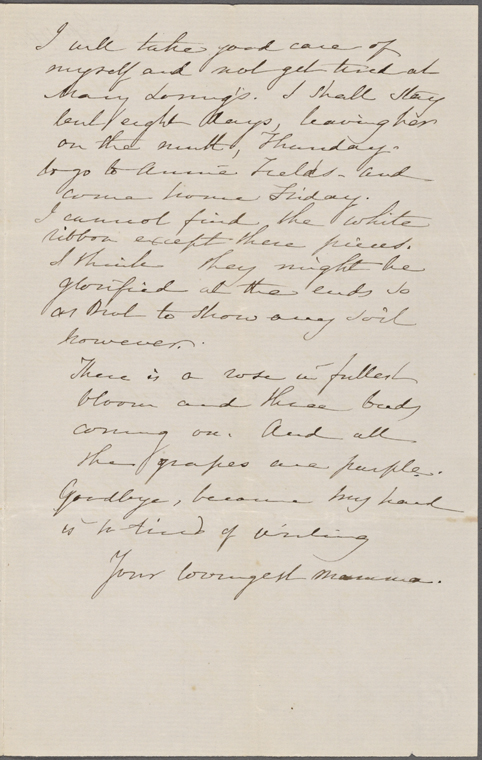 I will take good care of
myself and not get tired at
Mary Loring's. I shall stay
but eight days, leaving her
on the ninth, Thursday.
to go to Annie Fields - and
come home Friday.
I cannot find the white
ribbon except these pieces.
I think they might be
glorified at the ends so
as not to show any soil
however.
There is a rose in fullest
bloom and three buds
coming on. And all
the grapes are purple.
Goodbye, because my hand
is so tired of writing
Your lovingest mamma.